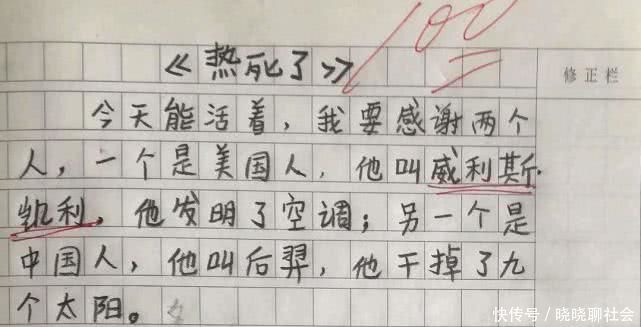 100
《热死了》
修正栏
今天能活着，我要感谢两个
人，一个是美国人，他叫威利斯·
凯利，他发明了空调；另一个是
中国人，他叫后羿，他干掉了九
个太阳。
快传号／晓晓聊社会